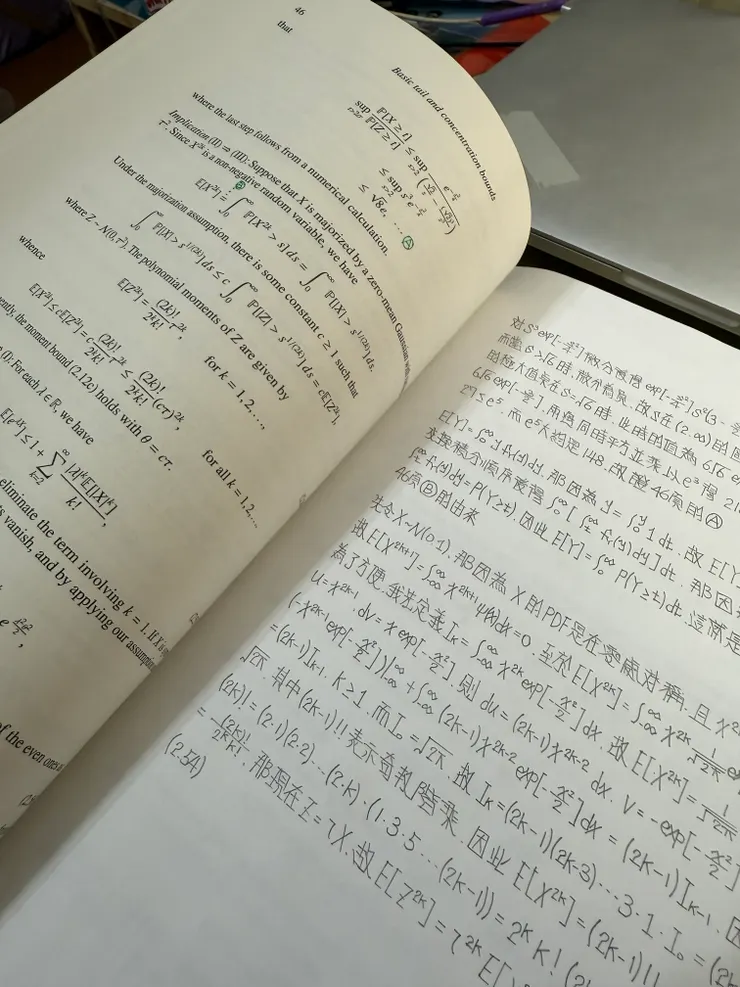 46
Basic tail and concentration bounds
that
sup_{t>2τ} ℙ[X ≥ t] / ℙ[Z ≥ t] ≤ sup_{s>2}
≤ sup_{s>2} s³ e^{-s²/2}
≤ √8e, ... Ⓐ
where the last step follows from a numerical calculation.
Implication (II) ⇒ (III): Suppose that X is majorized by a zero-mean Gaussian
τ². Since X^{2k} is a non-negative random variable, we have
Ⓑ
E[X^{2k}] = ∫₀^∞ ℙ[X^{2k} > s] ds = ∫₀^∞ ℙ[|X| > s^{1/(2k)}] ds.
Under the majorization assumption, there is some constant c ≥ 1 such that
∫₀^∞ ℙ[|X| > s^{1/(2k)}] ds ≤ c ∫₀^∞ ℙ[|Z| > s^{1/(2k)}] ds = cE[Z^{2k}],
where Z ~ N(0, τ²). The polynomial moments of Z are given by
E[Z^{2k}] = (2k)!/(2^k k!) τ^{2k}, for k = 1, 2, ...,
whence
E[X^{2k}] ≤ cE[Z^{2k}] = c (2k)!/(2^k k!) τ^{2k} ≤ (2k)!/(2^k k!) (cτ)^{2k}, for all k = 1, 2, ...,
ently, the moment bound (2.12c) holds with θ = cτ.
(I): For each λ ∈ ℝ, we have
E[e^{λX}] ≤ 1 + Σ_{k=2}^∞ |λ|^k E[|X|^k] / k!,
eliminate the term involving k = 1. If X is
s vanish, and by applying our assumption
of the even ones
對 s³exp[-s²/2] 微分獲得 exp[-s²/2]s²(3-
而當 s>√6 時, 微分為負, 故 s 在 (2,∞) 的
的極大值是在 s=√6 時, 此時的值為 6√6
6√6 exp[ 用 同時平方並乘以 e⁵ 得
27≤e⁵, 而 e⁵ 大約是 148, 故證 46 頁的 Ⓐ
E[Y]=∫₀^∞ y f_Y(y)dy, 那因為 y=∫₀^y 1 dt, 故 E[Y]
交換積分順序獲得 ∫₀^∞[∫_t^∞ f_Y(y)dy]dt, 那因為
∫_t^∞ f_Y(y)dy=P(Y≥t), 因此 E[Y]=∫₀^∞ P(Y≥t)dt, 這就是
46頁 Ⓑ 的由來
先令 X~N(0,1), 那因為 X 的 PDF 是在零處對稱, 且 X²
故 E[X^{2k+1}]=∫_{-∞}^∞ x^{2k+1}φ(x)dx=0, 至於 E[X^{2k}]=∫_{-∞}^∞ x^{2k} 1/√2π
為了方便, 我先定義 I_k=∫_{-∞}^∞ x^{2k}exp[-x²/2]dx, 故 E[X^{2k}]=1/√2π
u=x^{2k-1}, dv=x exp[-x²/2], 則 du=(2k-1)x^{2k-2}dx, v=-exp[-x²/2]
(-x^{2k-1}exp[-x²/2])|_{-∞}^∞+∫_{-∞}^∞(2k-1)x^{2k-2}exp[-x²/2]dx=(2k-1)I_{k-1},
=(2k-1)I_{k-1}, k≥1, 而 I₀=√2π, 故 I_k=(2k-1)(2k-3)…3·1·I₀=(2k
√2π, 其中 (2k-1)!! 表示奇數階乘, 因此 E[X^{2k}]=(2k-1)!!
(2k)!=(2·1)(2·2)…(2·k)·(1·3·5…(2k-1))=2^k k!(2k
=(2k)!/(2^k k!), 那現在 Z=τX, 故 E[Z^{2k}]=τ^{2k}E[
(2.54)